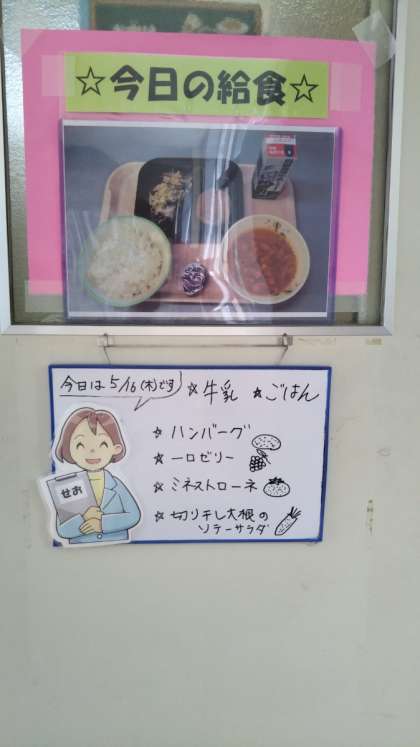 ☆今日の給食☆
今日は5/16(木)です
☆牛乳 ☆ごはん
☆ハンバーグ
☆一口ゼリー
☆ミネストローネ
☆切り干し大根の
ソテーサラダ
せお